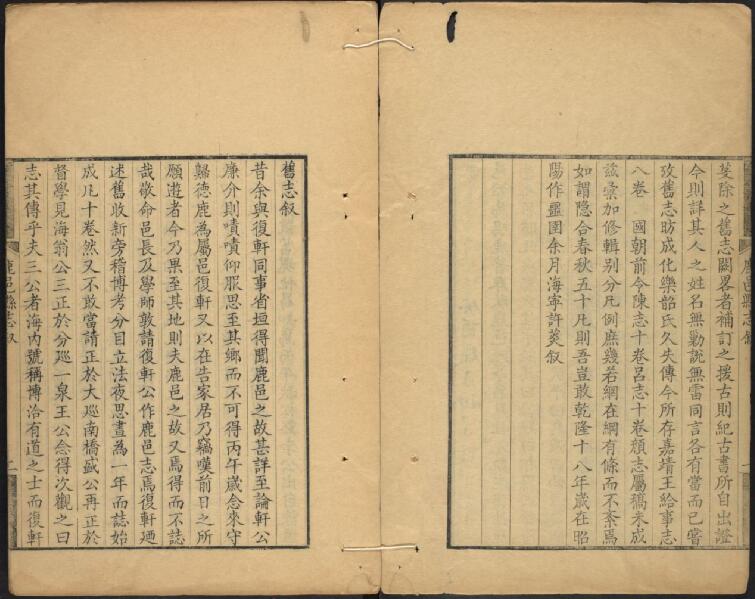 芟除之舊志闕畧者補訂之援古則紀古書所自出證
今則詳其人之姓名無勦說無雷同言各有當而已嘗
攷舊志昉成化樂韶氏久失傳今所存嘉靖王給事志
八卷 國朝前令陳志十卷呂志十卷頹志屬稿未成
茲彙加修輯别分凡例庶幾若網在綱有條而不紊焉
如謂隐合春秋五十凡則吾豈敢乾隆十八年歲在昭
陽作噩圉余月海寧許菼叙
舊志叙
昔余與復軒同事省垣得聞鹿邑之故甚詳至論軒公
廉介則嘖嘖仰服思至其鄉而不可得丙午歲忝來守
歸德鹿為屬邑復軒又以在告家居乃竊嘆前日之所
願遊者今乃果至其地則夫鹿邑之故又焉得而不誌
哉敬命邑長及學師敦請復軒公作鹿邑志焉復軒廼
述舊收新旁稽博考分目立法夜思晝為一年而誌始
成凡十卷然又不敢當請正於大廵南橋盛公再正於
督學見海翁公三正於分廵一泉王公忝得次觀之曰
志其傳乎夫三公者海內號稱博洽有道之士而復軒
鹿邑縣志叙
二